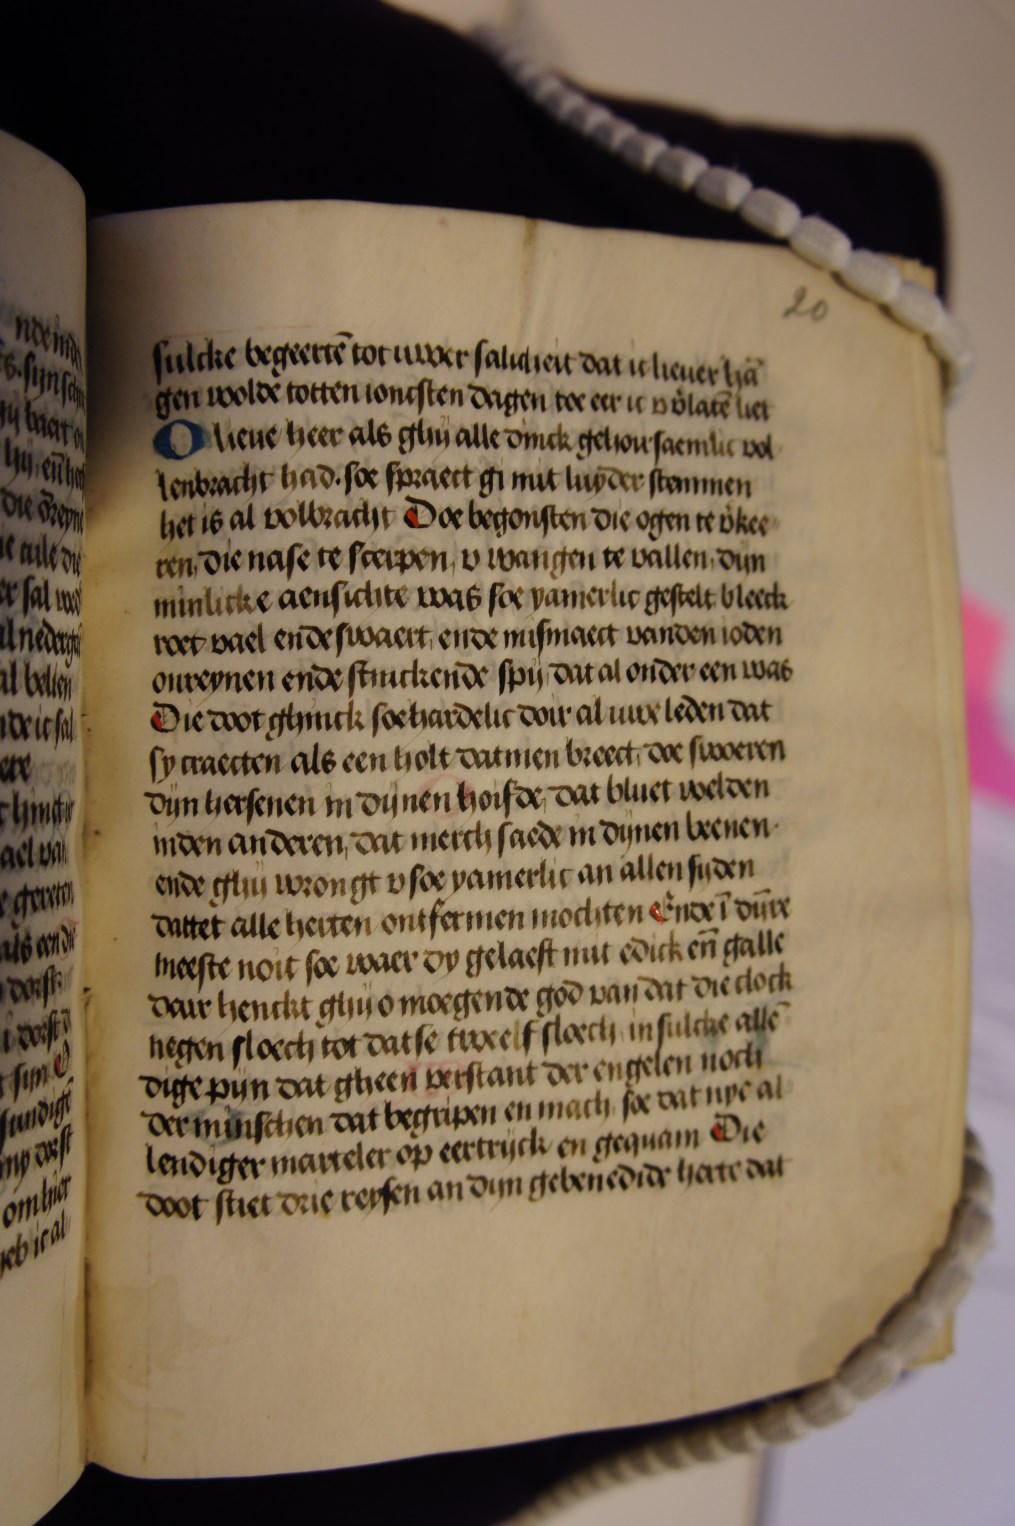 20
sulcke begeertē tot uwer salicheit dat ic lieuer hā
gen wolde totten ioncsten dagen toe eer ic v v̉latē liet
O lieue heer als ghij alle dinck gehoirsaemlic vol
lenbracht had. soe spraect gi mit luyder stemmen
het is al volbracht Doe begonsten die ogen te v̉kee
ren, die nase te scerpen, v wangen te vallen, dijn
minlicke aensichte was soe yamerlic gestelt bleeck
roet vael ende swaert, ende mismaect vanden ioden
onreynen ende stinckende spij, dat al onder een was
Die doot ghinck soe hardelic doir al uwe leden dat
sy craecten als een holt datmen breect, doe sworen
dijn hersenen in dijnen hoifde, dat bluet voelden
inden anderen, dat merch saede in dijnen beenen
ende ghij wrongt v soe yamerlic an allen sijden
dattet alle herten ontfermen mochten Ende ī dijnre
meeste noit soe waer dy gelaest mit edick en̄ galle
dair henckt ghij o moegende god van dat die clock
negen sloech tot datse twelf sloech in sulcke allē
dige pijn dat gheen verstant der engelen noch
der minschen dat begripen en mach, soe dat nye al
lendiger marteler op eertrijck en gequam Die
doot stiet drie reysen an dijn gebenedide herte dat